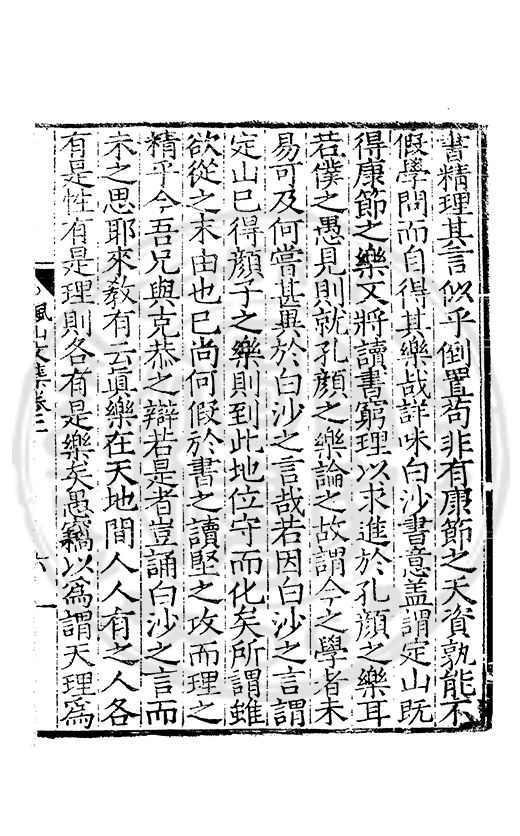 書精理其言似乎倒置苟非有康節之天資孰能不
假學問而自得其樂哉詳味白沙書意盖謂定山既
得康節之樂又將讀書窮理以求進於孔顔之樂耳
若僕之愚見則就孔顔之樂論之故謂今之學者未
易可及何嘗甚異於白沙之言哉若因白沙之言謂
定山已得顔子之樂則到此地位守而化矣所謂雖
欲從之末由也已尚何假於書之讀堅之攻而理之
精乎今吾兄與克恭之辯若是者豈誦白沙之言而
未之思耶來教有云眞樂在天地間人人有之人各
有是性有是理則各有是樂矣愚竊以為謂天理為
楓山文集卷二
六